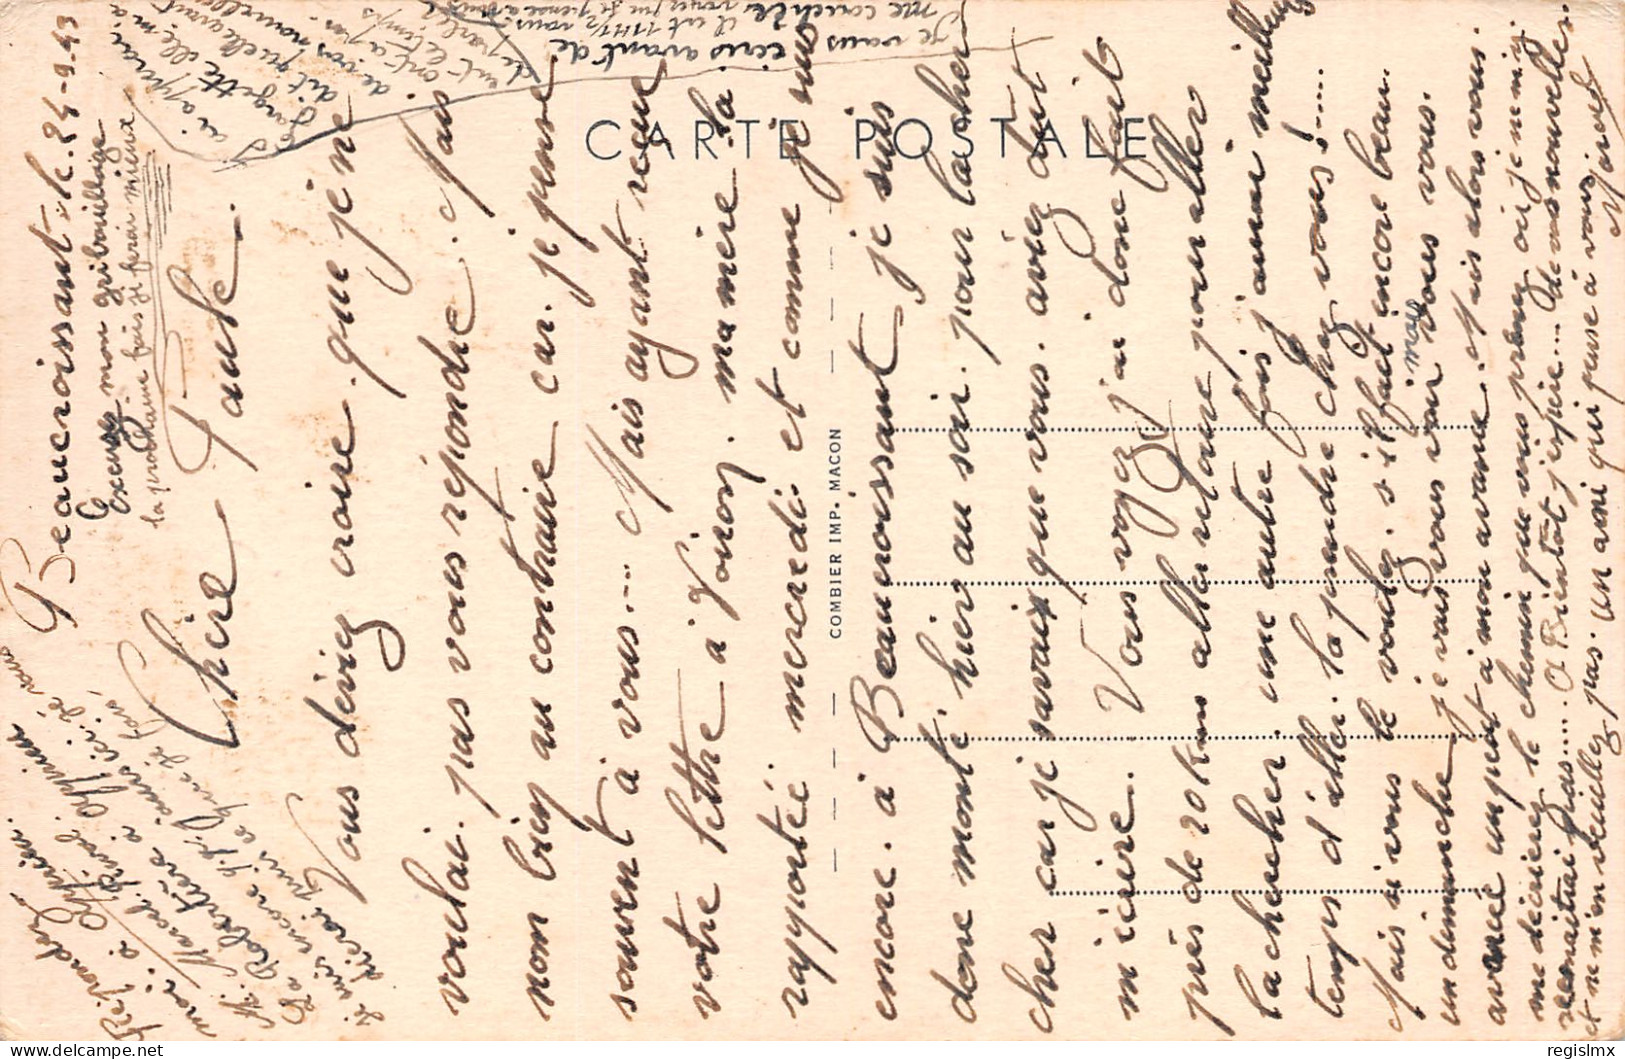 Beaucroissant. le. 24-9.43
Excusez mon gribouillage
la prochaine fois je ferai mieux
Chère Paule.
Vous deviez croire. que je ne
voulai. pas vous répondre. Mais
non bien au contraire car. je pense
souvent à vous... Mais ayant reçue
votre lettre à Voiron. ma mère. la
rapportée. mercredi. et comme je suis
encore. à Beaucroissant je suis
donc monté. hier au soir. pour la cher
cher car je savais que vous. aviez dut
m'écrire. Vous voyez j'ai donc fait
près de 20 Kms aller retour pour aller
la chercher. une autre fois j'aurai meilleur
temps d'aller. la prendre chez vous!....
Mais si vous le voulez. s'il fait encore beau.
un dimanche je vais vous voir vous vous.
avec un peut à mon avance. Mais alors vous.
me décrirez le chemin que vous prenez où je m'y
reconnaitrai pas..... A Bientôt j'espère... de vos nouvelles.
et ne m'en veuillez pas. un ami qui pense à vous
CARTE POSTALE
COMBIER IMP. MACON
Répondez
moi: à Apprieu.
M. Marcel.
La Ratière à Apprieu
je suis encore
dirai puis ce que je fais.
J'ai appris par
Ginette elle m'a
dit qu'elle avait
de vos nouvelles.
parlé
Je vais
me coucher
écris avant de
il est 11H1/2 vous
voyez que je pense à vous